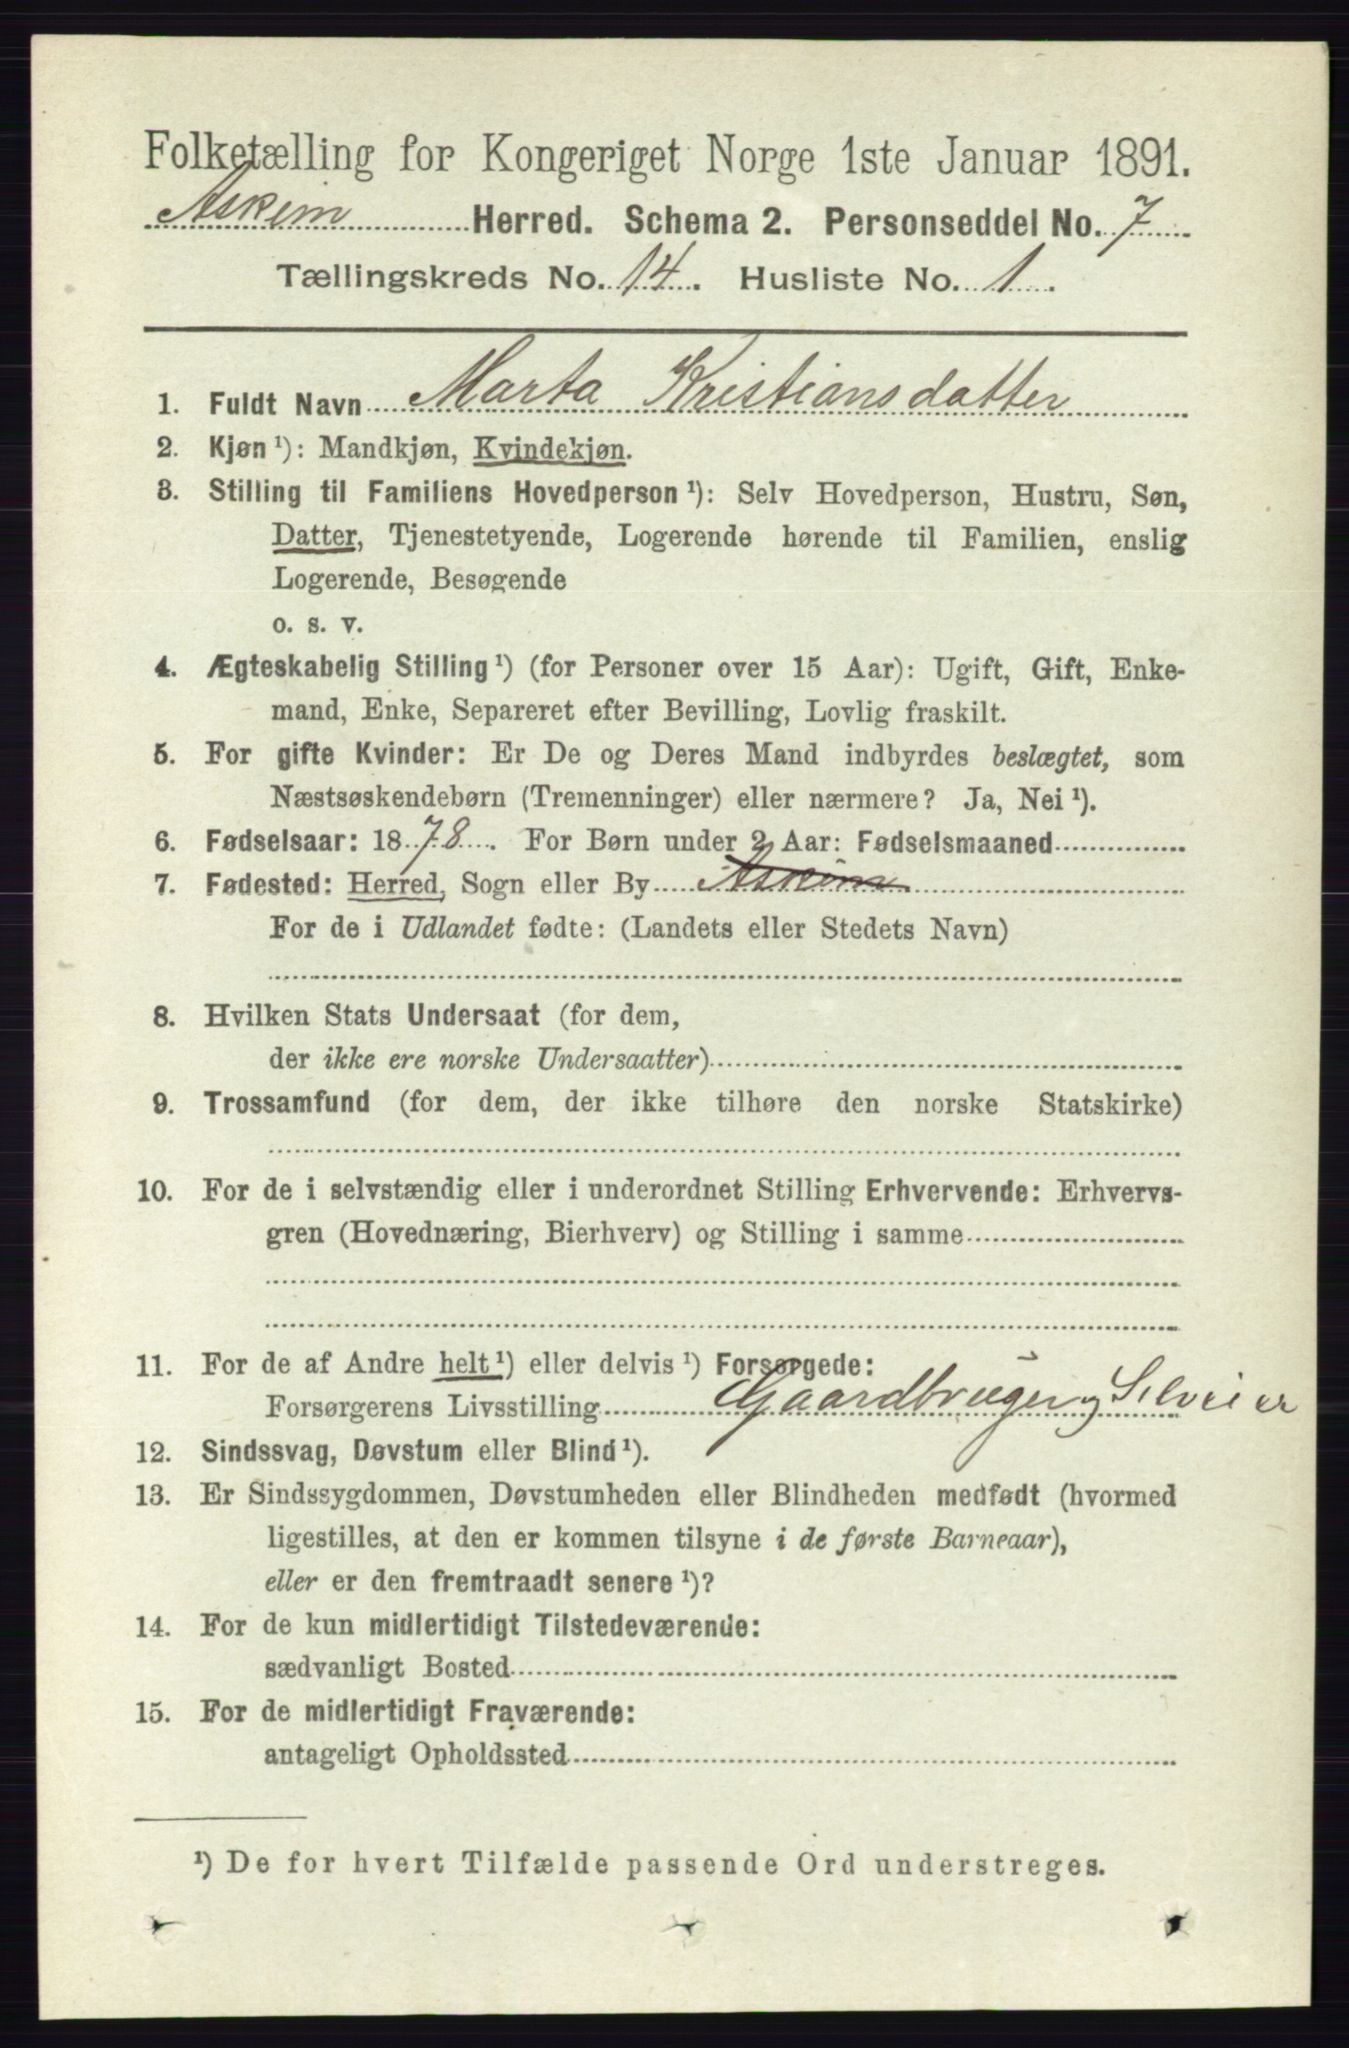 Folketælling for Kongeriget Norge 1ste Januar 1891.
Askim Herred. Schema 2. Personseddel No. 7
Tællingskreds No. 14. Husliste No. 1.
1. Fuldt Navn Marta Kristiansdatter
2. Kjøn ¹): Mandkjøn, Kvindekjøn.
3. Stilling til Familiens Hovedperson ¹): Selv Hovedperson, Hustru, Søn,
Datter, Tjenestetyende, Logerende hørende til Familien, enslig
Logerende, Besøgende
o. s. v.
4. Ægteskabelig Stilling ¹) (for Personer over 15 Aar): Ugift, Gift, Enke-
mand, Enke, Separeret efter Bevilling, Lovlig fraskilt.
5. For gifte Kvinder: Er De og Deres Mand indbyrdes beslægtet, som
Næstsøskendebørn (Tremenninger) eller nærmere? Ja, Nei ¹).
6. Fødselsaar: 1878. For Børn under 2 Aar: Fødselsmaaned
7. Fødested: Herred, Sogn eller By Askim
For de i Udlandet fødte: (Landets eller Stedets Navn)
8. Hvilken Stats Undersaat (for dem,
der ikke ere norske Undersaatter)
9. Trossamfund (for dem, der ikke tilhøre den norske Statskirke)
10. For de i selvstændig eller i underordnet Stilling Erhvervende: Erhvervs-
gren (Hovednæring, Bierhverv) og Stilling i samme
11. For de af Andre helt ¹) eller delvis ¹) Forsørgede:
Forsørgerens Livsstilling Gaardbruger Selveier
12. Sindssvag, Døvstum eller Blind ¹).
13. Er Sindssygdommen, Døvstumheden eller Blindheden medfødt (hvormed
ligestilles, at den er kommen tilsyne i de første Barneaar),
eller er den fremtraadt senere ¹)?
14. For de kun midlertidigt Tilstedeværende:
sædvanligt Bosted
15. For de midlertidigt Fraværende:
antageligt Opholdssted
¹) De for hvert Tilfælde passende Ord understreges.